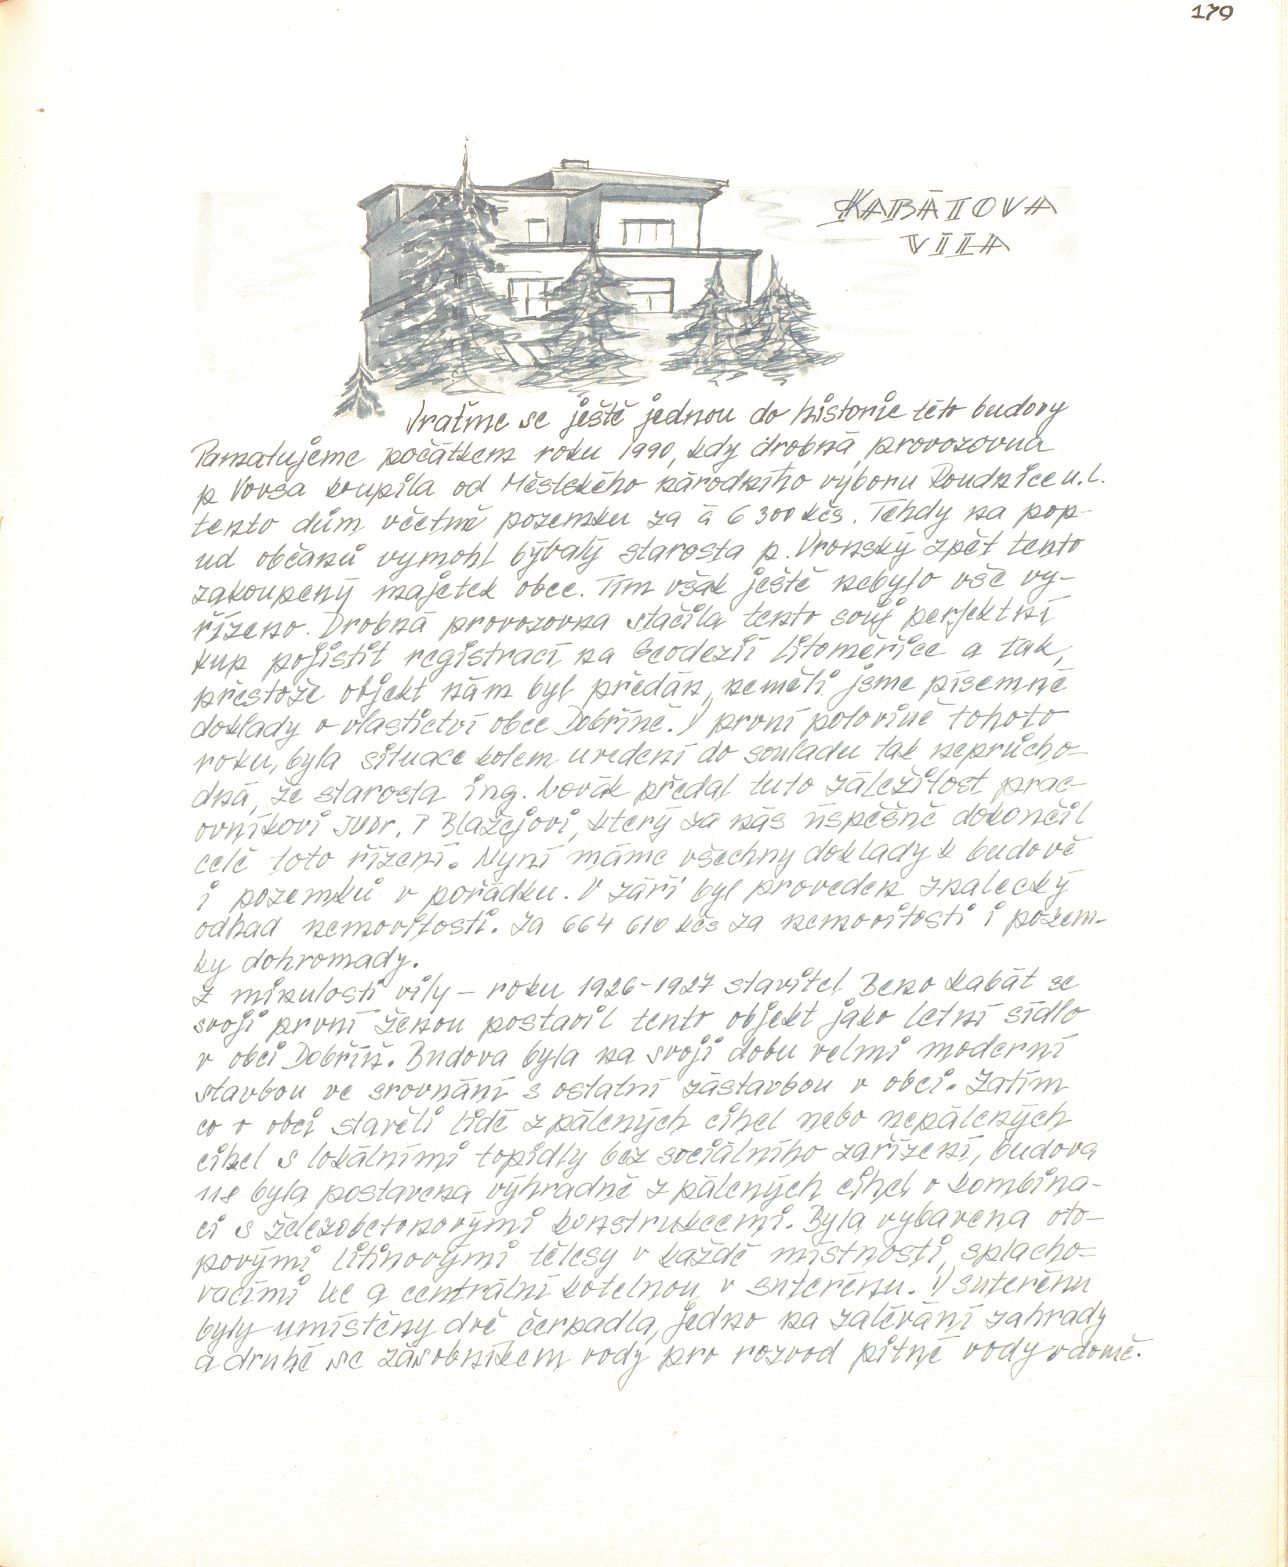 179
KABÁTOVA
VILA
Vraťme se ještě jednou do historie této budovy
Pamatujeme počátkem roku 1990, kdy drobná provozovna
p Vovsa koupila od Městského národního výboru Roudnice n.l.
tento dům včetně pozemku za á 6 300 kčs. Tehdy na pop-
ud občanů vymohl bývalý starosta p. Vronský zpět tento
zakoupený majetek obce. Tím však ještě nebylo vše vy-
řízeno. Drobná provozovna stačila tento svůj perfektní
kup pojistit registrací na Geodezii Litoměřice a tak,
přestože objekt nám byl předán, neměli jsme písemné
doklady o vlastictví obce Dobříně. V první polovině tohoto
roku, byla situace kolem uvedení do souladu tak neprůcho-
dná, že starosta ing. Novák předal tuto záležitost prac-
ovníkovi JUDr. P Blažejovi, který za nás úspěšně dokončil
celé toto řízení. Nyní máme všechny doklady k budově
i pozemků v pořádku. V září byl proveden znalecký
odhad nemovitosti. Za 664 610 kčs za nemovitosti i pozem-
ky dohromady.
Z minulosti vily – roku 1926-1927 stavitel Beno Kabát se
svojí první ženou postavil tento objekt jako letní sídlo
v obci Dobříň. Budova byla na svoji dobu velmi moderní
stavbou ve srovnání s ostatní zástavbou v obci. Zatím
co v obci stavěli lidé z pálených cihel nebo nepálených
cihel s lokálními topidly bez sociálního zařízení, budova
už byla postavena výhradně z pálených cihel v kombina-
ci s železobetonovými konstrukcemi. Byla vybavena oto-
povými litinovými tělesy v každé místnosti, splacho-
vacími WC a centrální kotelnou v suterénu. V suterénu
byly umístěny dvě čerpadla, jedno na zalévání zahrady
a druhé se zásobníkem vody pro rozvod pitné vody v domě.